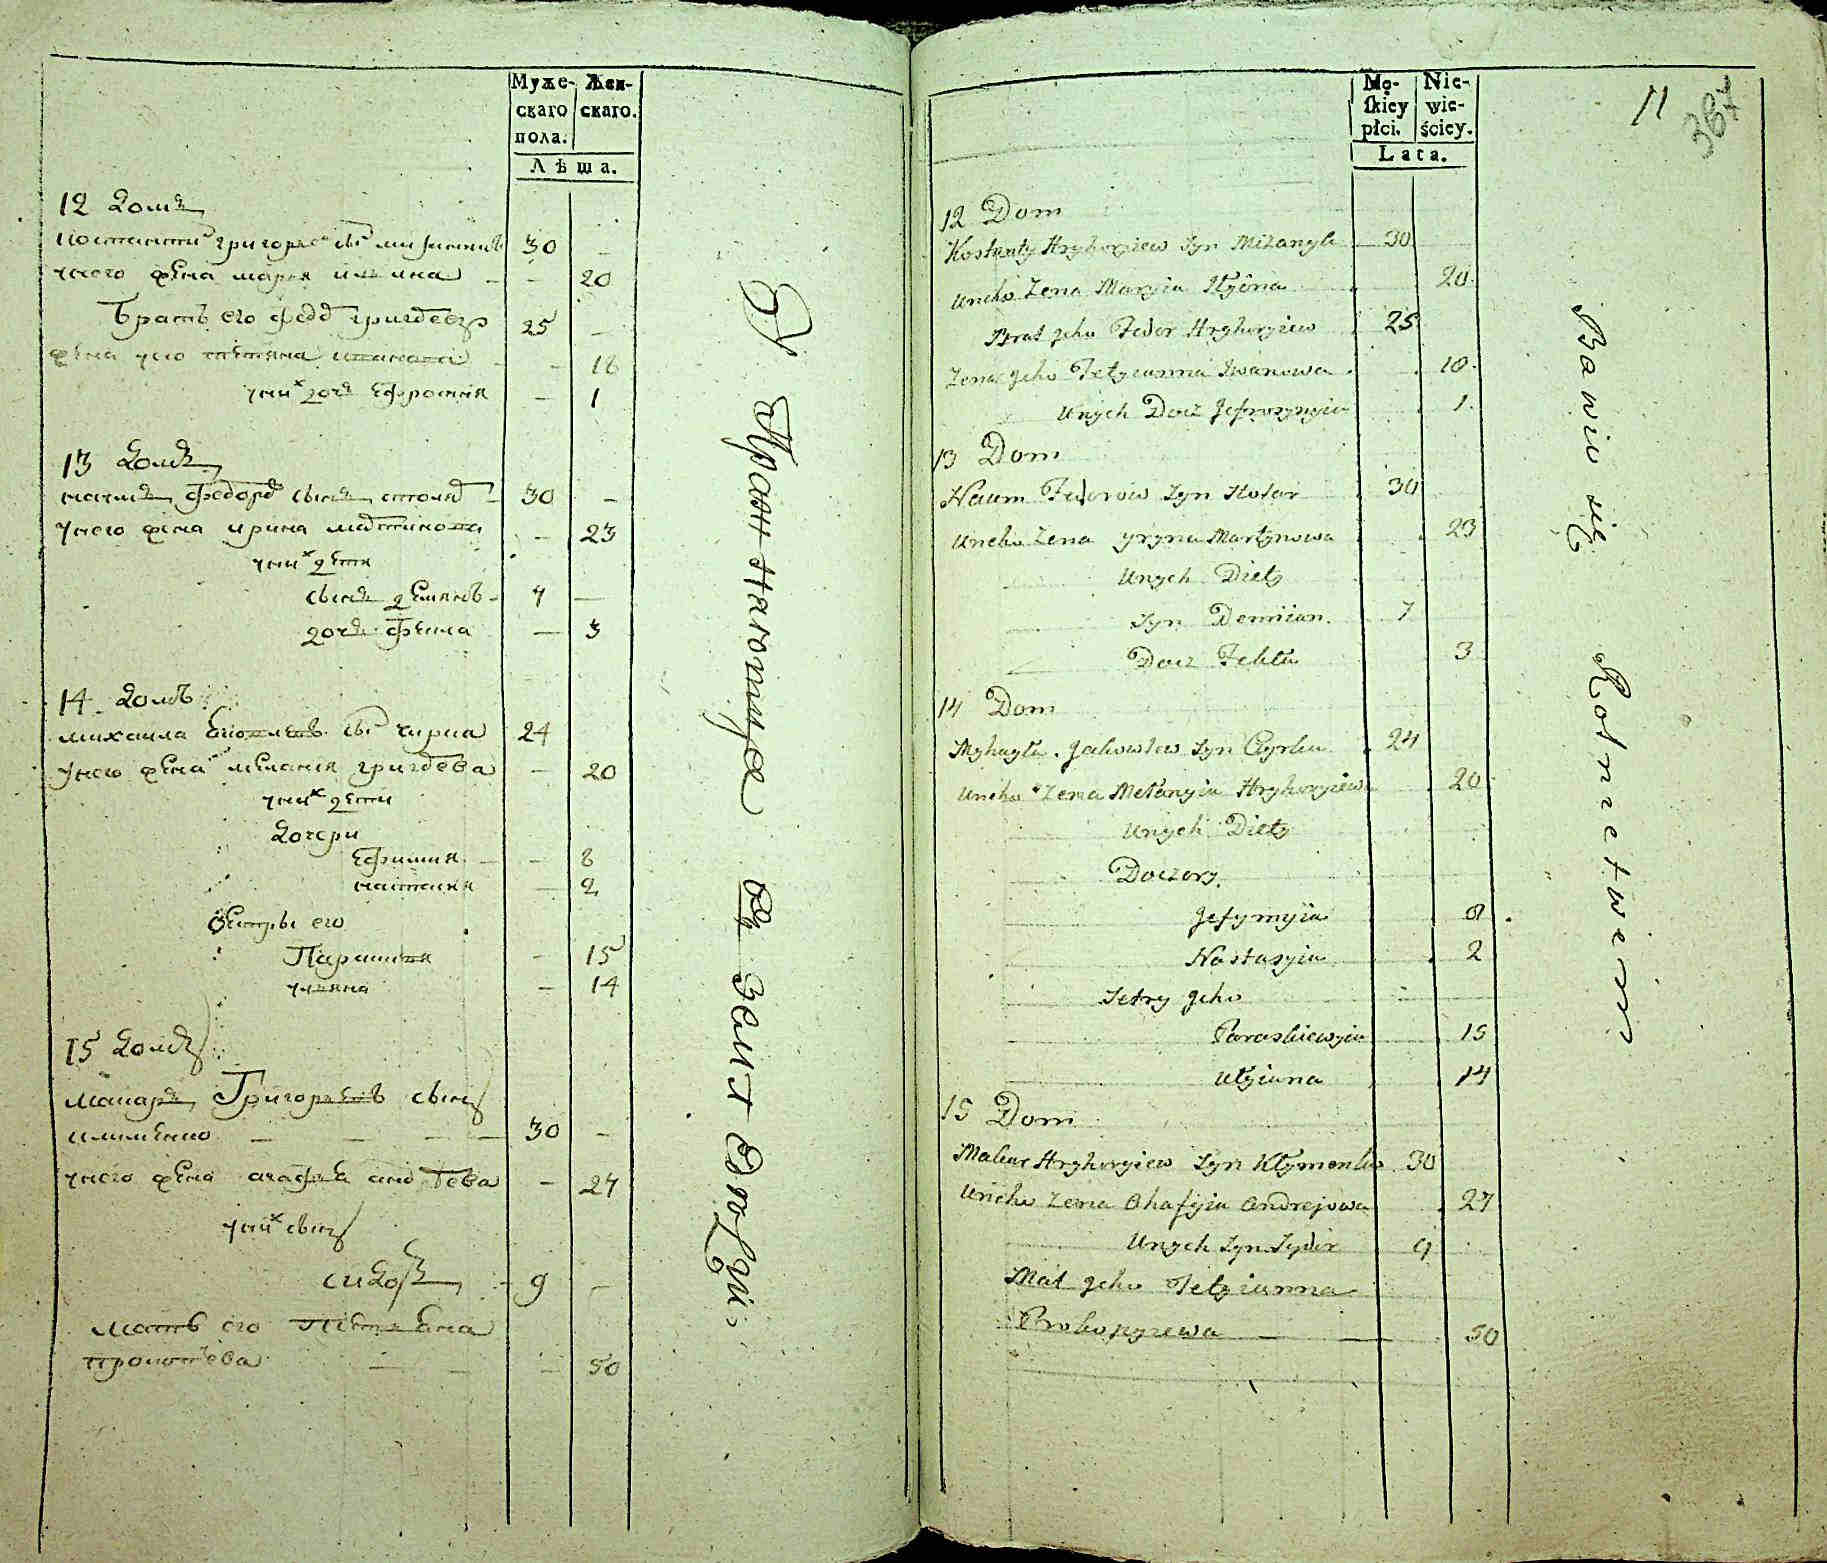 Муже-
скаго
пола.
Жен-
скаго.
Лѣта.
12 домъ
30
у него жена мария 20
братъ его 25
жена у его татяна 18
у них доч ефросиния 1
13 домъ
наумъ федоров сынъ 30
у него жена ирина мартинова 23
у них дети
сынъ демянъ 7
дочь фекла 3
14 домъ
михаила яковлевъ сы чирка 24
у него жена мелания григорева 20
у них дети
дочери
ефимия 8
настасия 2
сестры его
Парасковия 15
уляна 14
15 домъ
макаръ Григориевъ сынъ
клименко 30
у него жена агафия андреева 27
у них сынъ
сидоръ 9
мать его татияна
прокопева 50
Mę-
skiey
płci.
Nie-
wie-
ściey.
Lata.
11
367
12 Dom
Kostanty Hryhoryiew Syn 30
Uneho Zena Maryia Ilyina 20
Brat Jeho Fedor Hryhoryiew 25
Zena Jeho Tetyianna Iwanowa 18
Unych Docz Jefrosynyia 1
13 Dom
Naum Fedorow Syn 30
Uneho Zena Yryna Martynowa 23
Unych Diety
Syn Demiian 7
Docz Fekła 3
14 Dom
Myhayła Jakowlew Syn Czyrka 24
Uneho Zena Mełanyia Hryhoryiewa 20
Unych Diety
Doczery
Jefymyia 8
Nastasyia 2
Setry Jeho
Paraskiewyia 15
Ulyiana 14
15 Dom
Makar Hryhoryiew Syn Kłymenko 30
Uneho Zena Ohafyia Andrejowa 27
Unych Syn Sydir 9
Mat Jeho Tetyianna
Prokopyiewa 50
Bawią się Rolnictwem